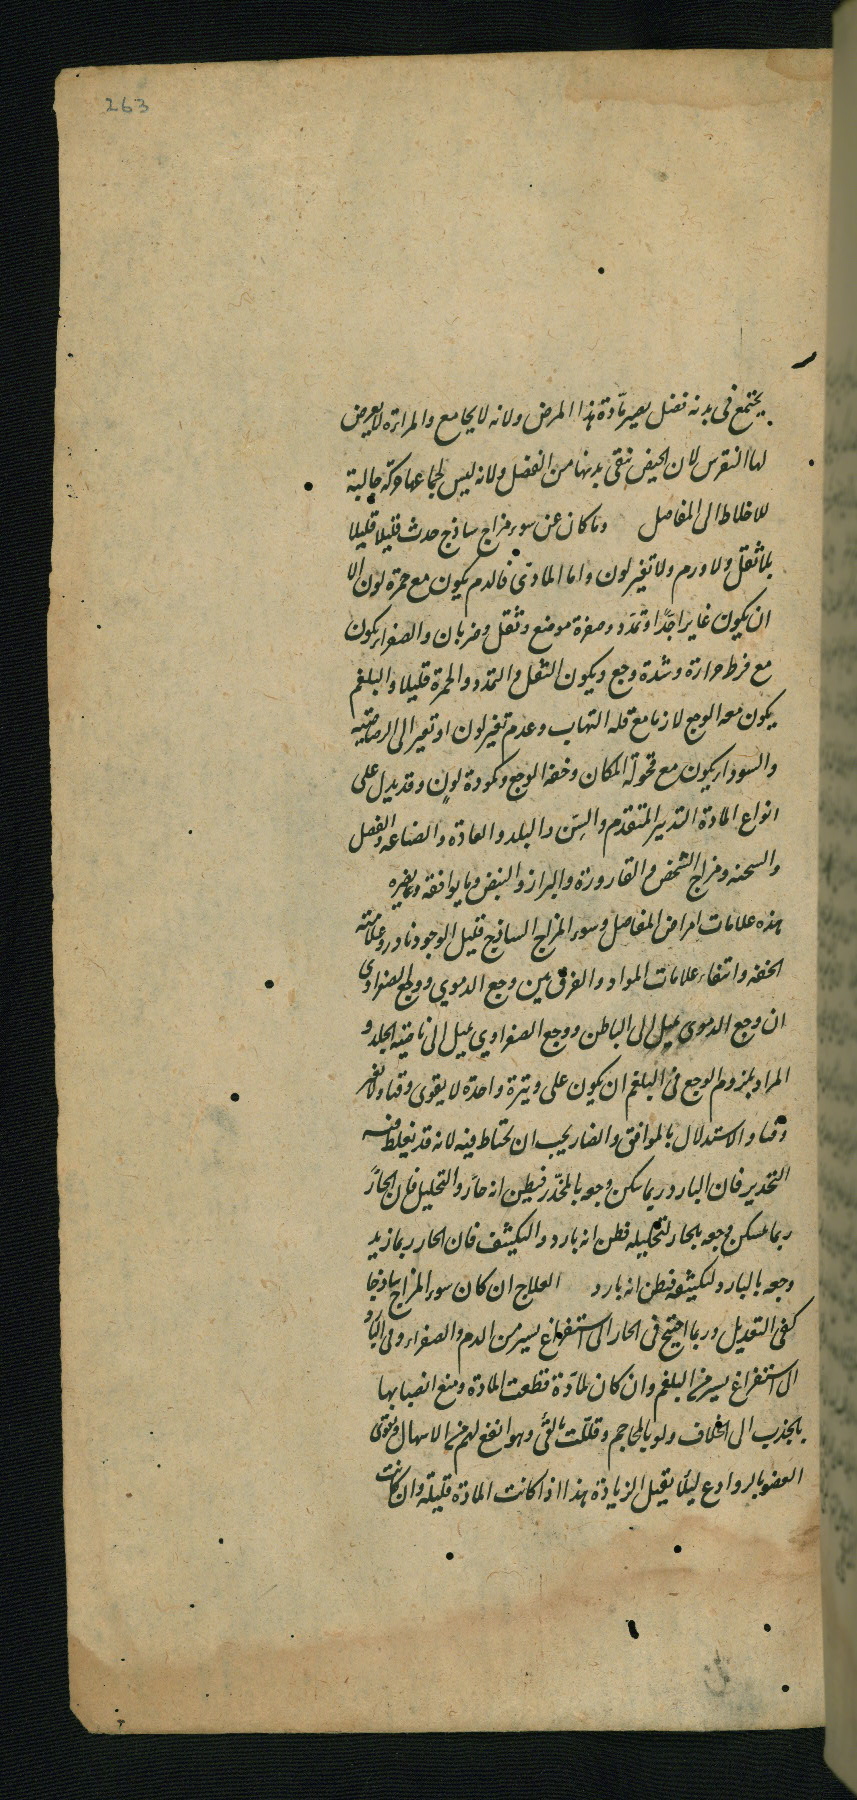 263
يجتمع فى بدنه فضل يصير مادة هذا المرض ولانه لا يجامع والمراة لا يعرض
لها النقرس لان الحيض نقى بدنها من الفضل ولانه ليس لجماعها حركة جالبة
للاخلاط الى المفاصل وما كان عن سوء مزاج ساذج حدث قليلا قليلا
بلا ثقل ولا ورم ولا تغير لون واما المادى فالدم يكون مع حمرة لون الا
ان يكون غايرا جدًا وتمدد وصفرة موضع وثقل وضربان والصفراء يكون
مع فرط حرارة وشدة وجع ويكون الثقل والتمدد والحمرة قليلا والبلغم
يكون معه الوجع لازما مع قلة التهاب وعدم تغير لون او تغير الى الرصاصية
والسوداء يكون مع قحولة المكان وخفة الوجع وكمودة لون وقد يدل على
انواع المادة التدبير المتقدم والسن والبلد والعادة والصناعة والفصل
والسحنة ومزاج الشخص والقارورة والبراز والنبض وما يوافقه وما يضره
هذه علامات امراض المفاصل وسوء المزاج الساذج قليل الوجود نادر وعلامته
الخفة وانتفاء علامات المواد والفرق بين وجع الدموي ووجع الصفراوى
ان وجع الدموى يميل الى الباطن ووجع الصفراوي يميل الى ناحية الجلد و
المراد بلزوم الوجع فى البلغم ان يكون على وتيرة واحدة لا يقوى وقتا ولا يفتر
وقتا والاستدلال بالموافق والضار يجب ان يحتاط فيه لانه قد يغلط فيه
التخدير فان البارد ربما سكن وجعه بالمخدّر فيظن انه حار والتحليل فان الحارّ
ربما سكن وجعه بالحار لتحليله فظن انه بارد والتكثيف فان الحار ربما زيد
وجعه بالبارد لتكثيفه فيظن انه بارد العلاج ان كان سوء المزاج ساذجا
كفى التعديل وربما احتيج فى الحار الى استفراغ يسير من الدم والصفراء وفى البارد
الى استفراغ يسير من البلغم وان كان لمادة قطعت المادة ومنع انصبابها
بالجذب الى الخلاف ولو بالمحاجم وقللت بالقئ وهو انفع لهم من الاسهال وتقوى
العضو بالروادع لئلا يقبل الزيادة هذا اذا كانت المادة قليلة وان كانت